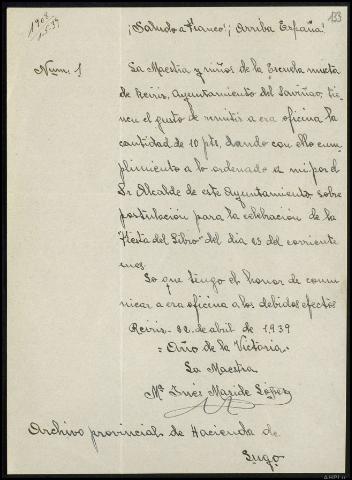 133
1908
1-5-39
¡Saludo a Franco! ¡Arriba España!
Num. 1
La Maestra y niños de la Escuela mixta
de Reiris, Ayuntamiento del Saviñao, tie-
nen el gusto de remitir a esa oficina la
cantidad de 10 pts, dando con ello cum-
plimiento a lo ordenado a mi por el
Sr Alcalde de este Ayuntamiento sobre
postulación para la celebración de la
"Fiesta del Libro" del dia 23 del corriente
mes.
Lo que tengo el honor de comu-
nicar a esa oficina a los debidos efectos
Reiris- 22 de abril de 1.939
= Año de la Victoria.
La Maestra
Mª Inés Maside López
Archivo provincial de Hacienda de
Lugo
AHPLu